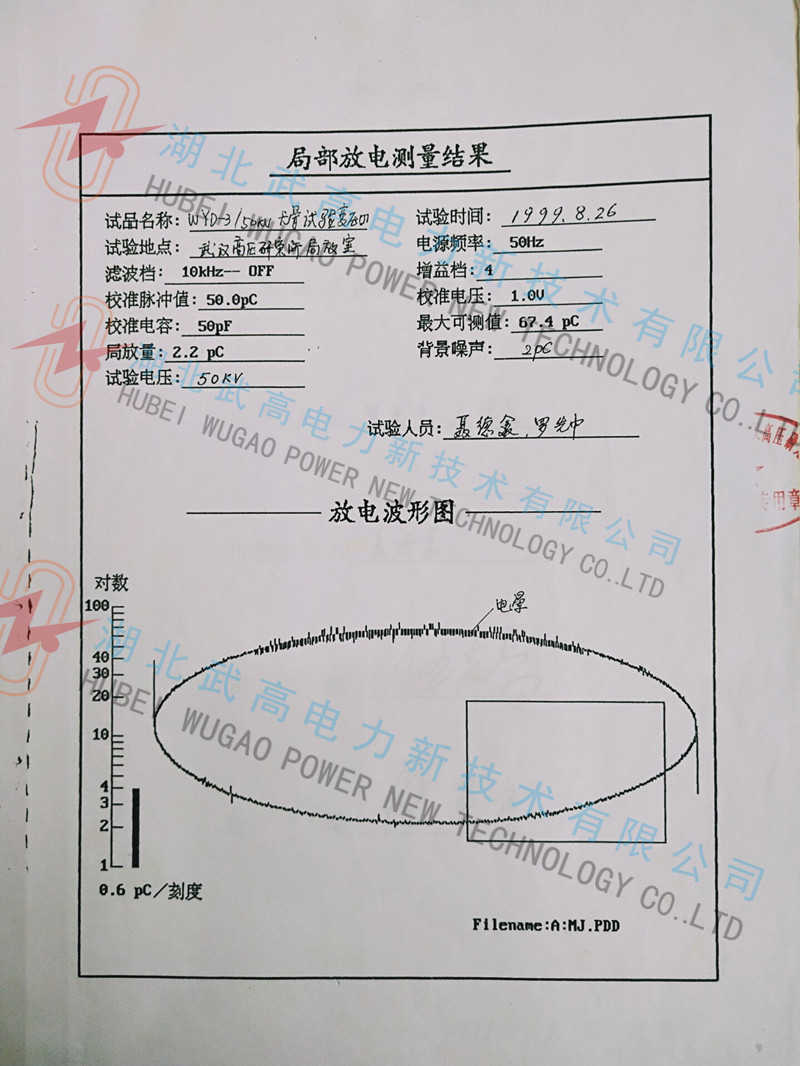 局部放电测量结果
试品名称: WYD-3/50KV 试验变压
试验时间: 1999.8.26
试验地点: 武汉高压研究所局放室
电源频率: 50Hz
滤波档: 10kHz-- OFF
增益档: 4
校准脉冲值: 50.0pC
校准电压: 1.0V
校准电容: 50pF
最大可测值: 67.4 pC
局放量: 2.2 pC
背景噪声: 2pC
试验电压: 50KV
试验人员:
放电波形图
对数
100
40
30
20
10
4
3
2
1
电晕
0.6 pC/刻度
Filename:A:MJ.PDD
湖北武高电力新技术有限公司
HUBEI WUGAO POWER NEW TECHNOLOGY CO.,LTD
湖北武高电力新技术有限公司
HUBEI WUGAO POWER NEW TECHNOLOGY CO..LTD
湖北武高电力新技术有限公司
HUBEI WUGAO POWER NEW TECHNOLOGY CO..LTD
高压研
专用章